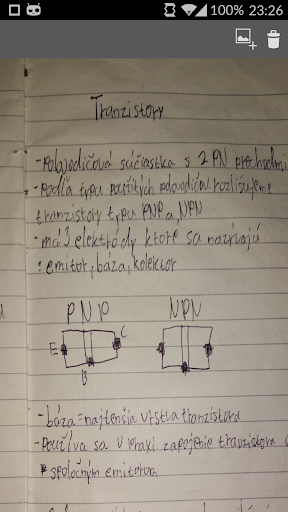 100% 23:26
Tranzistory
-Polovodičová súčiastka s 2 PN prechodmi
-Podľa typu použitých polovodičov rozlišujeme
tranzistory typu PNP a NPN
-má 3 elektródy ktoré sa nazývajú
: emitor, báza, kolektor
PNP NPN
E C
B
-báza = najtenšia vrstva tranzistora
-Používa sa v praxi zapojenie tranzistora
spoločným emitorom